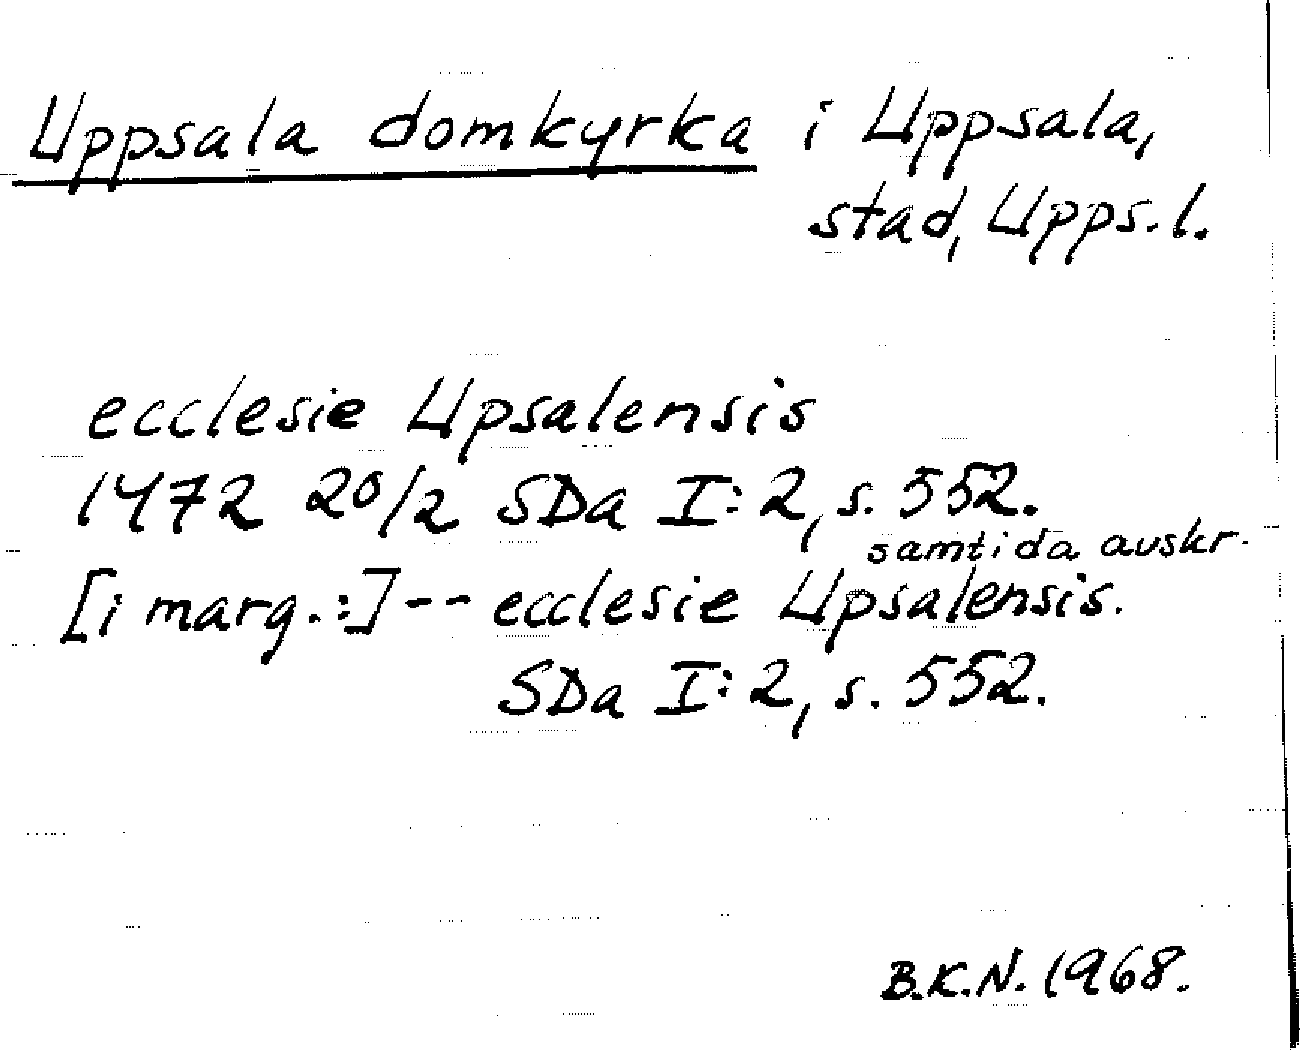 Uppsala domkyrka i Uppsala,
stad, Upps.l.
ecclesie Upsalensis
1472 20/2 SDa I:2, s. 552.
samtida avskr.
[i marg.:]-- ecclesie Upsalensis.
SDa I:2, s. 552.
B.K.N. 1968.